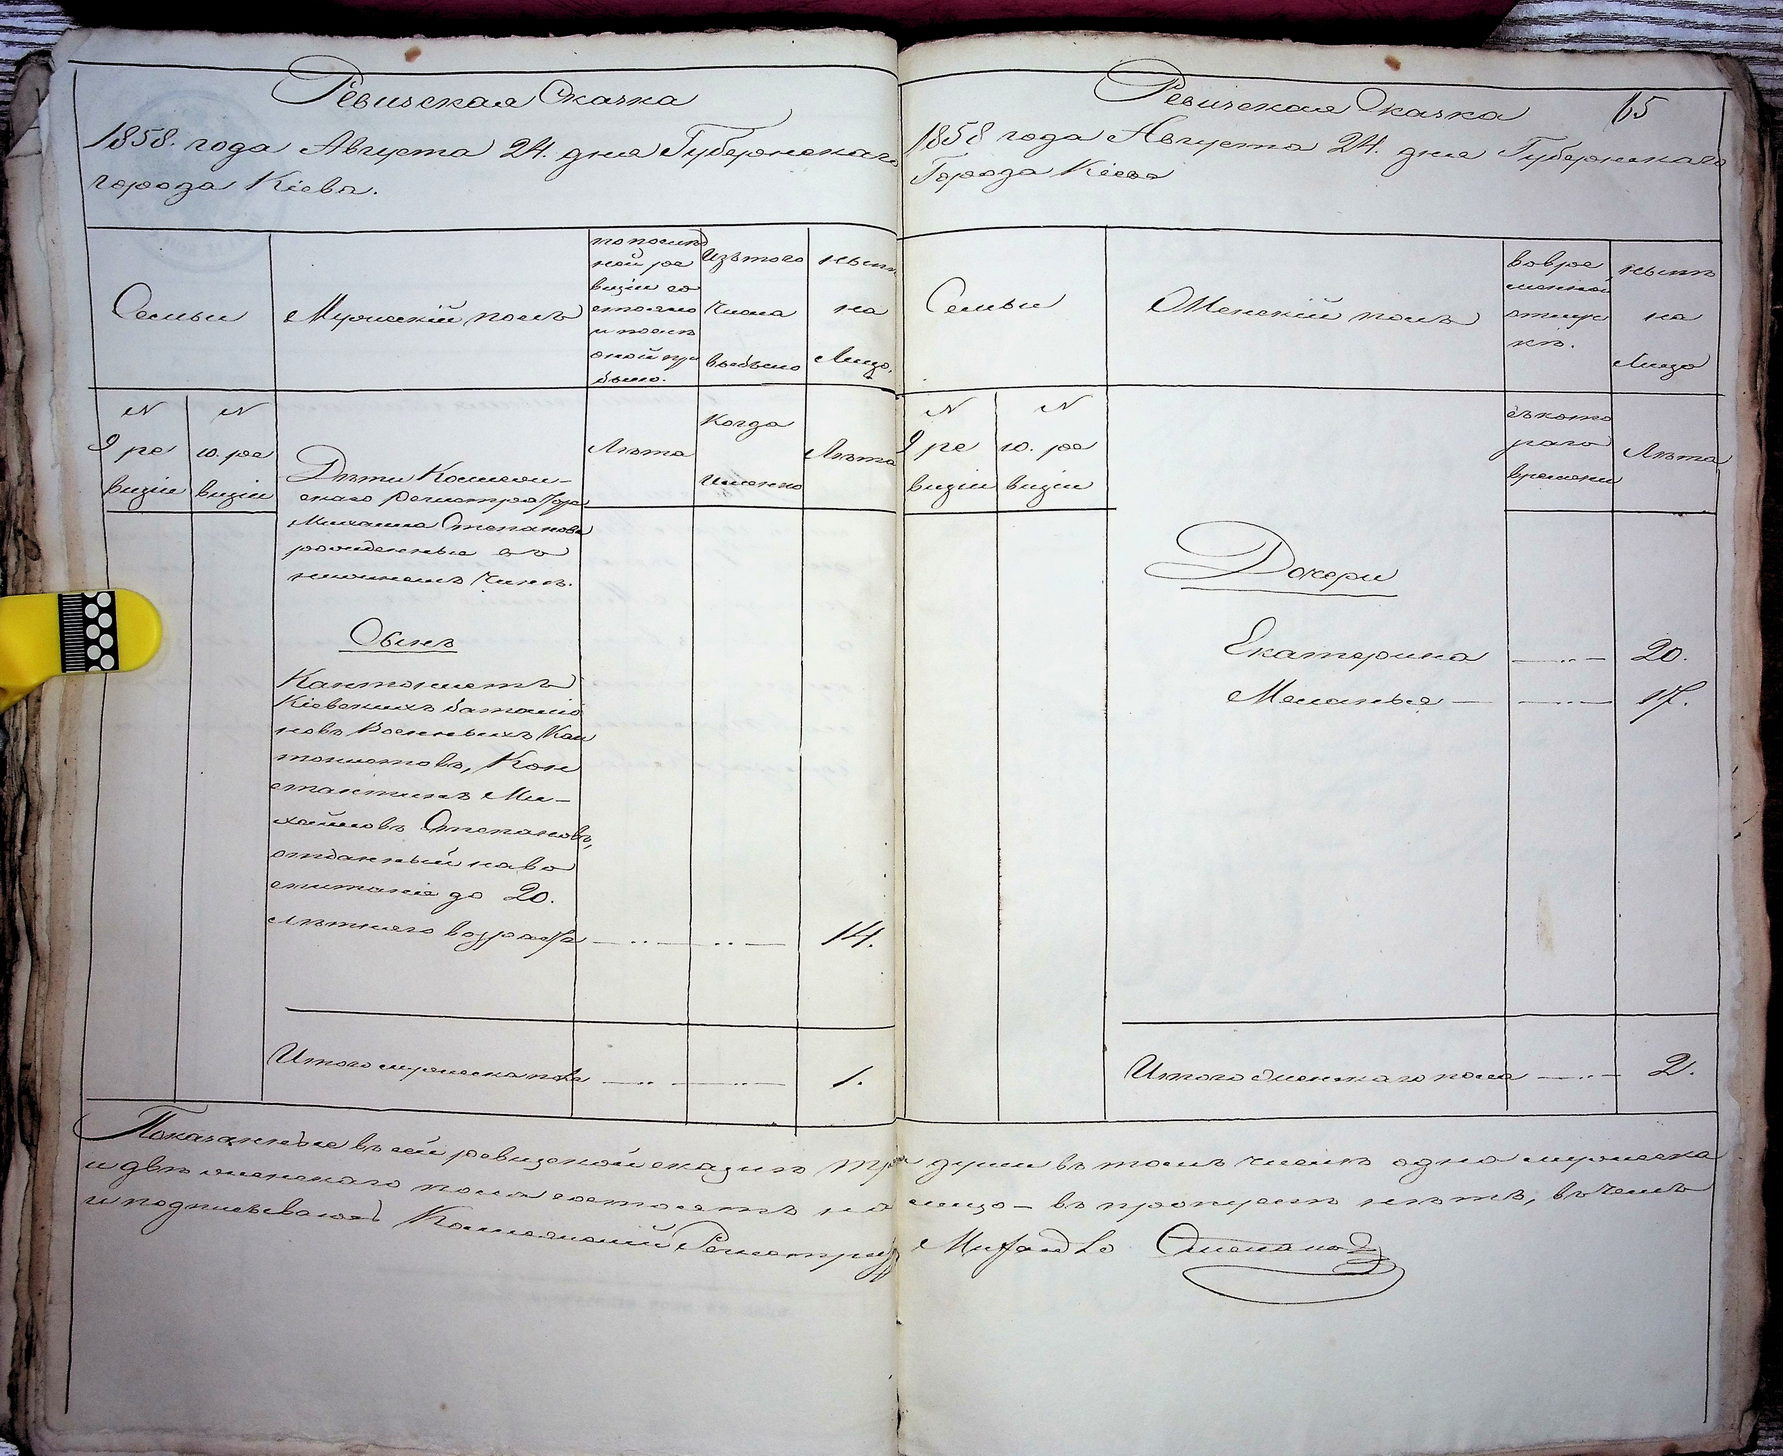 Ревизская Сказка
1858. года Августа 24. дня Губернскаго
города Кіева.
Семьи
Мужескій полъ
по послѣд
ней ре
визіи со
стояло
и послѣ
оной при
было.
Изъ того
числа
выбыло
нынѣ
на
Лицо.
N
9 ре
визіи
N
10. ре
визіи
Лѣта
Когда
именно
Лѣта
Дѣти Коллеж-
скаго Регистратора
Михаила Степанова
рожденные въ
нижнемъ чинѣ.
Сынъ
Кантонистъ
Кіевскихъ баталіо
новъ Военныхъ Кан
тонистовъ, Кон
стантинъ Ми-
хайловъ Степановъ,
отданный на во
спитаніе до 20.
лѣтняго возраста 14.
Итого мужеска пола 1.
Ревизская Сказка
65
1858 года Августа 24. дня Губернскаго
Города Кіева
Семьи
Женскій полъ
во вре
менной
отлуч
кѣ.
нынѣ
на
Лицо
N
9 ре
визіи
N
10. ре
визіи
съ кото
раго
времени
Лѣта
Дочери
Екатерина 20.
Меланья 17.
Итого женскаго пола 2.
Показанные въ сей ревизской сказкѣ три души въ томъ числѣ одна мужеска
и двѣ женскаго пола состоятъ на лицо – въ пропускѣ нѣтъ, въ чемъ
и подписываюсь Коллежскій Регистраторъ Степановъ